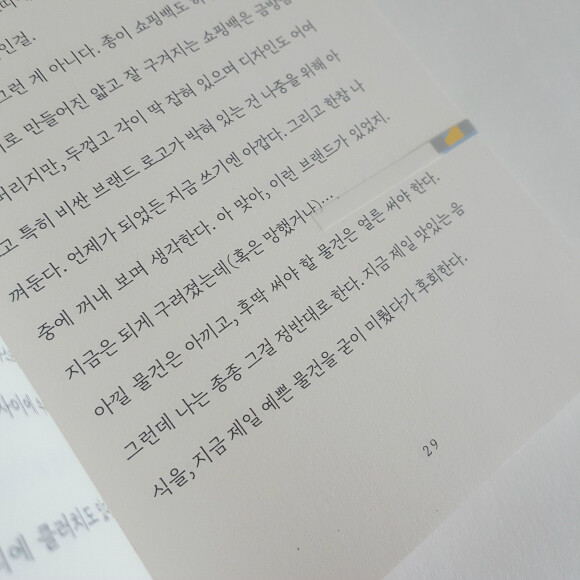 인걸.
그런 게 아니다. 종이 쇼핑백도
로 만들어진 얇고 잘 구겨지는 쇼핑백은 금방
버리지만, 두껍고 각이 딱 잡혀 있으며 디자인도 어여
고 특히 비싼 브랜드 로고가 박혀 있는 건 나중을 위해 아
껴둔다. 언제가 되었든 지금 쓰기엔 아깝다. 그리고 한참 나
중에 꺼내 보며 생각한다. 아 맞아, 이런 브랜드가 있었지.
지금은 되게 구려졌는데(혹은 망했거나)…
아낄 물건은 아끼고, 후딱 써야 할 물건은 얼른 써야 한다.
그런데 나는 종종 그걸 정반대로 한다. 지금 제일 맛있는 음
식을, 지금 제일 예쁜 물건을 굳이 미뤘다가 후회한다.
29
사이에
에 클러치도